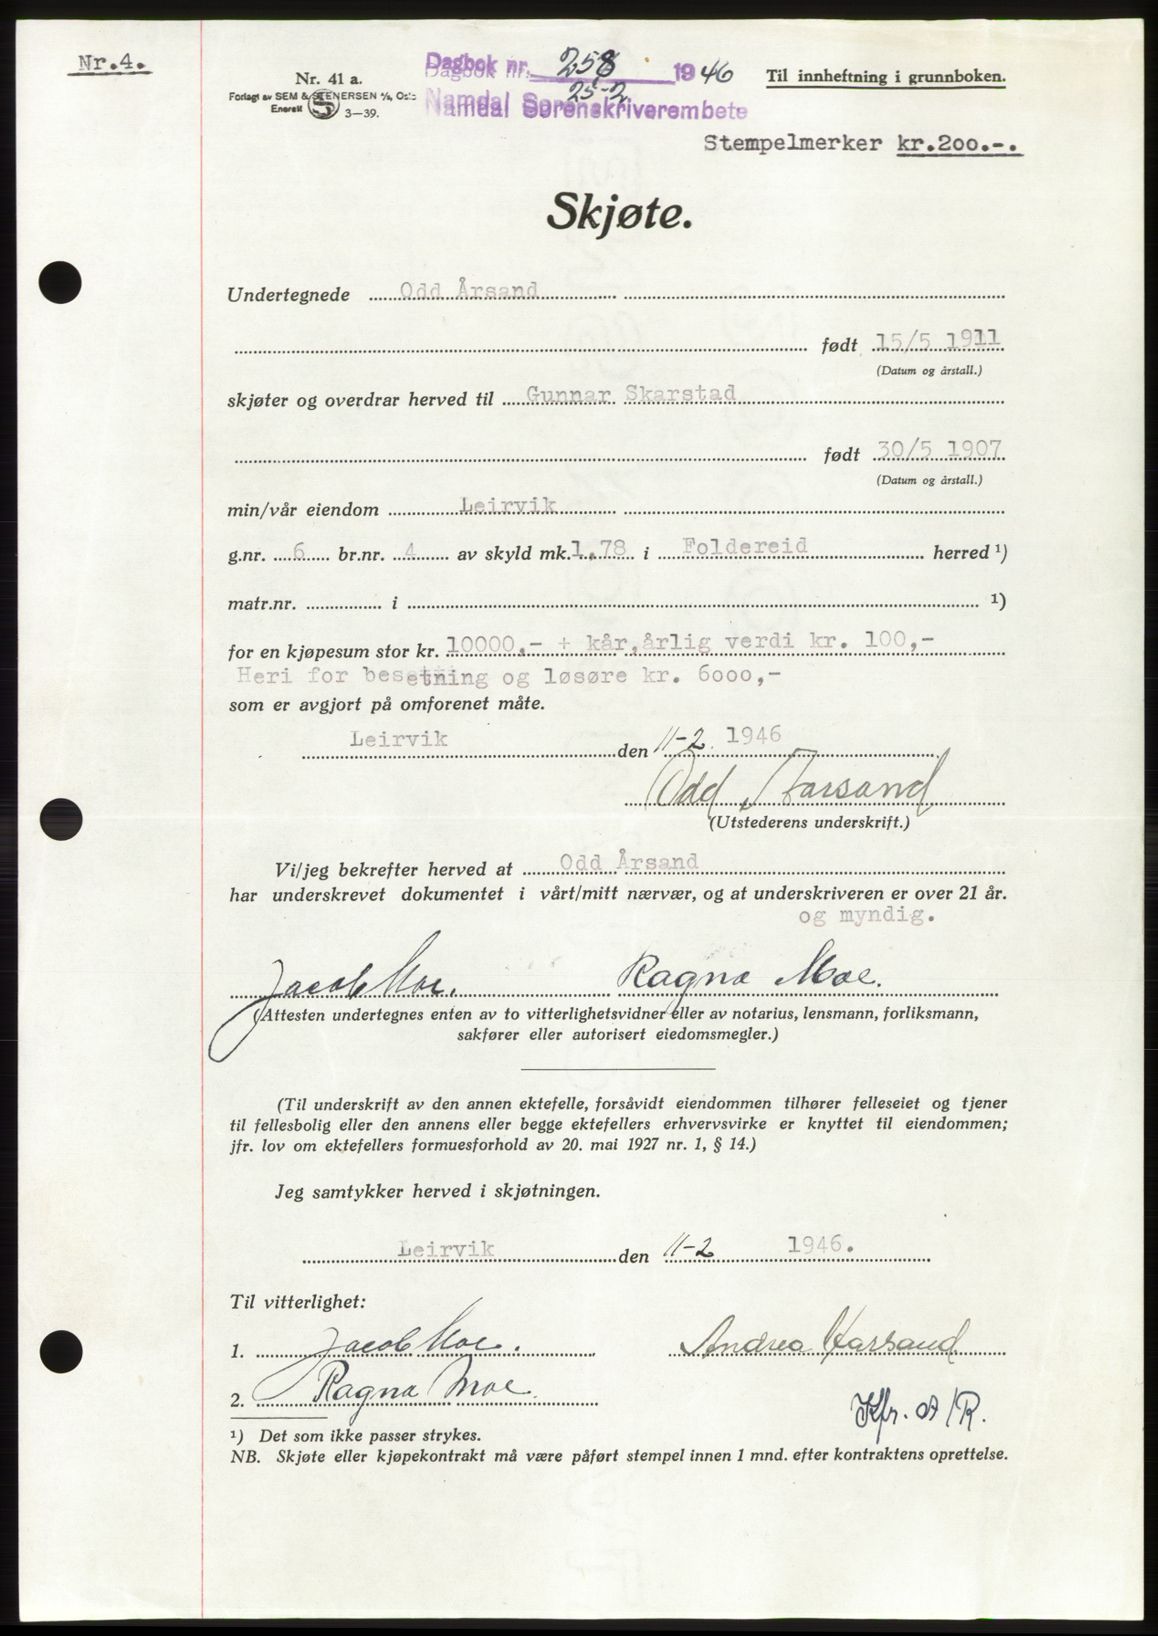 Nr.4.
Nr. 41 a.
Forlagt av SEM & STENERSEN A/S, Oslo
Enerett S 3—39.
Dagbok nr. 258 1946
25-2
Namdal Sorenskriverembete
Til innheftning i grunnboken.
Stempelmerker kr.200.-.
Skjøte.
Undertegnede Odd Årsand
født 15/5 1911
(Datum og årstall.)
skjøter og overdrar herved til Gunnar Skarstad
født 30/5 1907
(Datum og årstall.)
min/vår eiendom Leirvik
g.nr. 6 br.nr. 4 av skyld mk. 1,78 i Foldereid herred ¹)
matr.nr. i ¹)
for en kjøpesum stor kr. 10000,- + kår,årlig verdi kr. 100,-
Heri for besetning og løsøre kr. 6000,-
som er avgjort på omforenet måte.
Leirvik den 11-2. 1946
Odd Aarsand
(Utstederens underskrift.)
Vi/jeg bekrefter herved at Odd Årsand
har underskrevet dokumentet i vårt/mitt nærvær, og at underskriveren er over 21 år.
og myndig.
Jacob Moe. Ragna Moe.
(Attesten undertegnes enten av to vitterlighetsvidner eller av notarius, lensmann, forliksmann,
sakfører eller autorisert eiedomsmegler.)
(Til underskrift av den annen ektefelle, forsåvidt eiendommen tilhører felleseiet og tjener
til fellesbolig eller den annens eller begge ektefellers erhvervsvirke er knyttet til eiendommen;
jfr. lov om ektefellers formuesforhold av 20. mai 1927 nr. 1, § 14.)
Jeg samtykker herved i skjøtningen.
Leirvik den 11-2 1946.
Til vitterlighet:
1. Jacob Moe. Andrea Aarsand
2. Ragna Moe.
Kfr. A/R.
¹) Det som ikke passer strykes.
NB. Skjøte eller kjøpekontrakt må være påført stempel innen 1 mnd. efter kontraktens oprettelse.